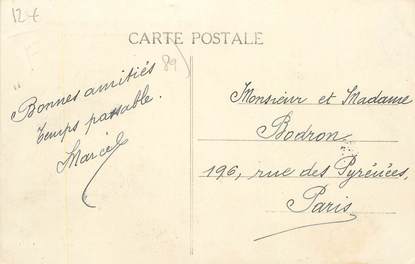 12 €
CARTE POSTALE
89
Bonnes amitiés
Temps passable.
Marcel
Monsieur et Madame
Bodron
196, rue des Pyrénées,
Paris